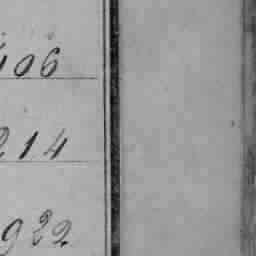 406
214
922